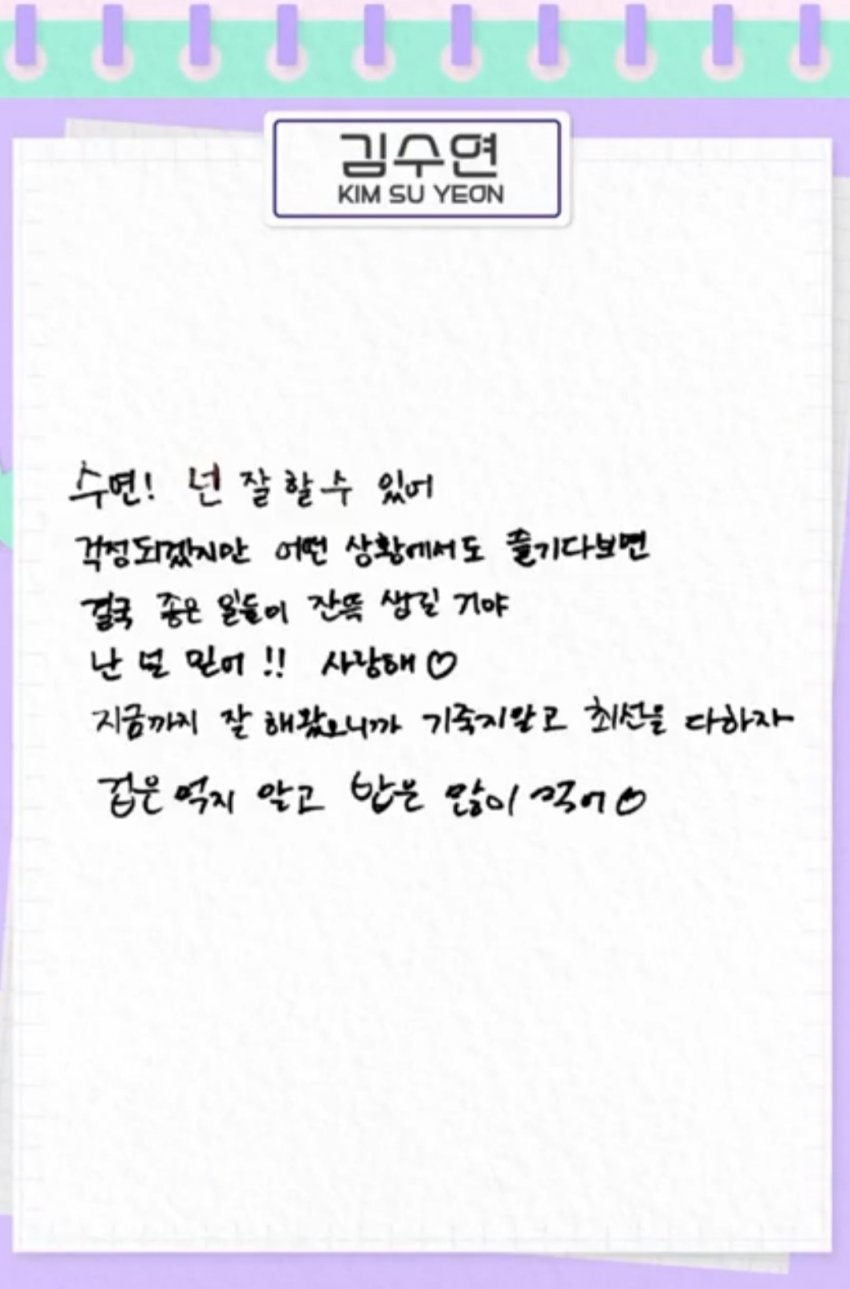 김수연
KIM SU YEON
수연! 넌 잘 할 수 있어
걱정되겠지만 어떤 상황에서도 즐기다보면
결국 좋은 일들이 잔뜩 생길 거야
난 널 믿어!! 사랑해♡
지금까지 잘 해왔으니까 기죽지말고 최선을 다하자
겁은 먹지 말고 밥은 많이 먹어♡